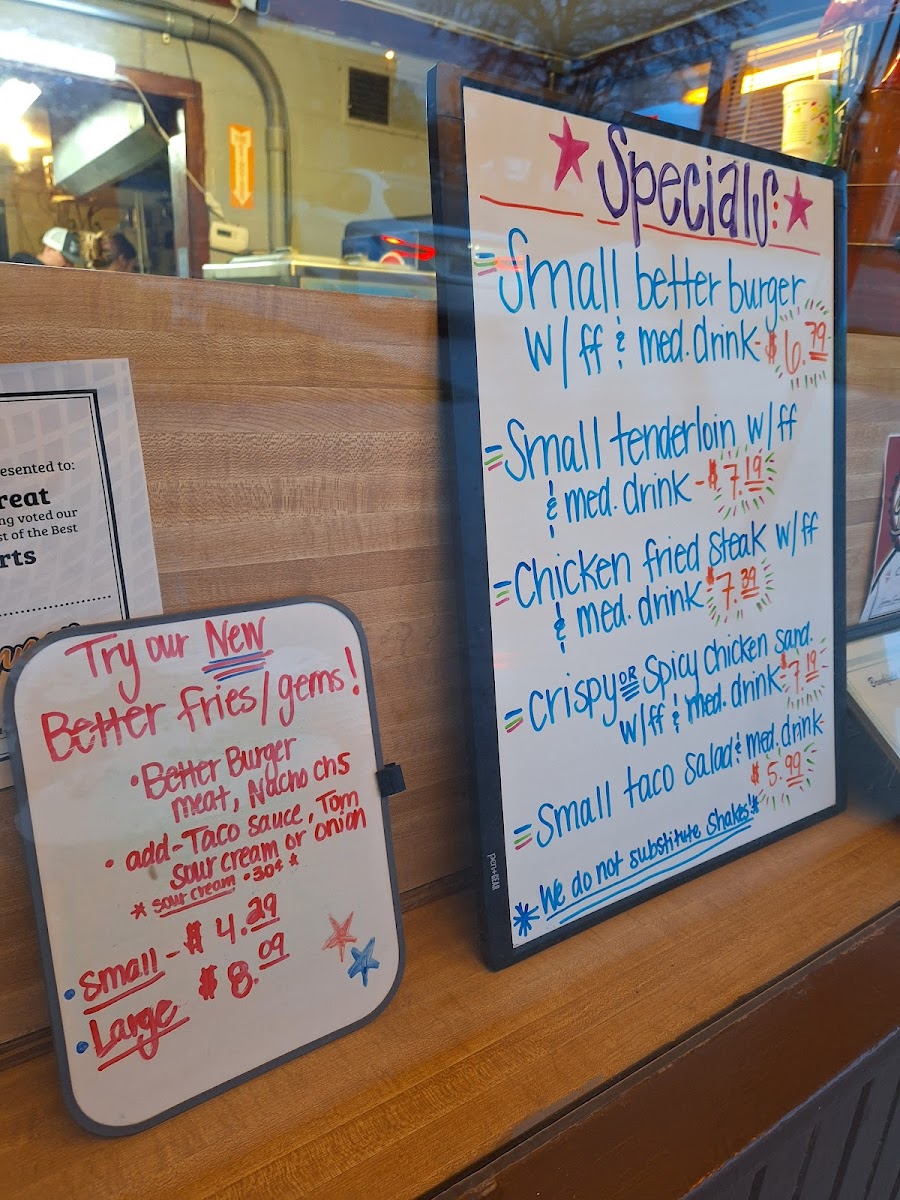 Specials:
=Small better burger
w/ff & med. drink- $6.79
=Small tenderloin w/ff
& med. drink - $7.19
=Chicken fried steak w/ff
& med. drink $7.39
=Crispy OR Spicy Chicken sand.
w/ff & med. drink- $7.19
=Small taco salad & med. drink-
$5.99
*We do not substitute Shakes!*
PEN+GEAR
Try our New
Better fries/gems!
•Better Burger
meat, Nacho chs
• add-Taco sauce, Tom
sour cream or onion
* sour cream •30¢ *
•Small - $4.29
•Large $8.09
esented to:
reat
ng voted our
st of the Best
rts